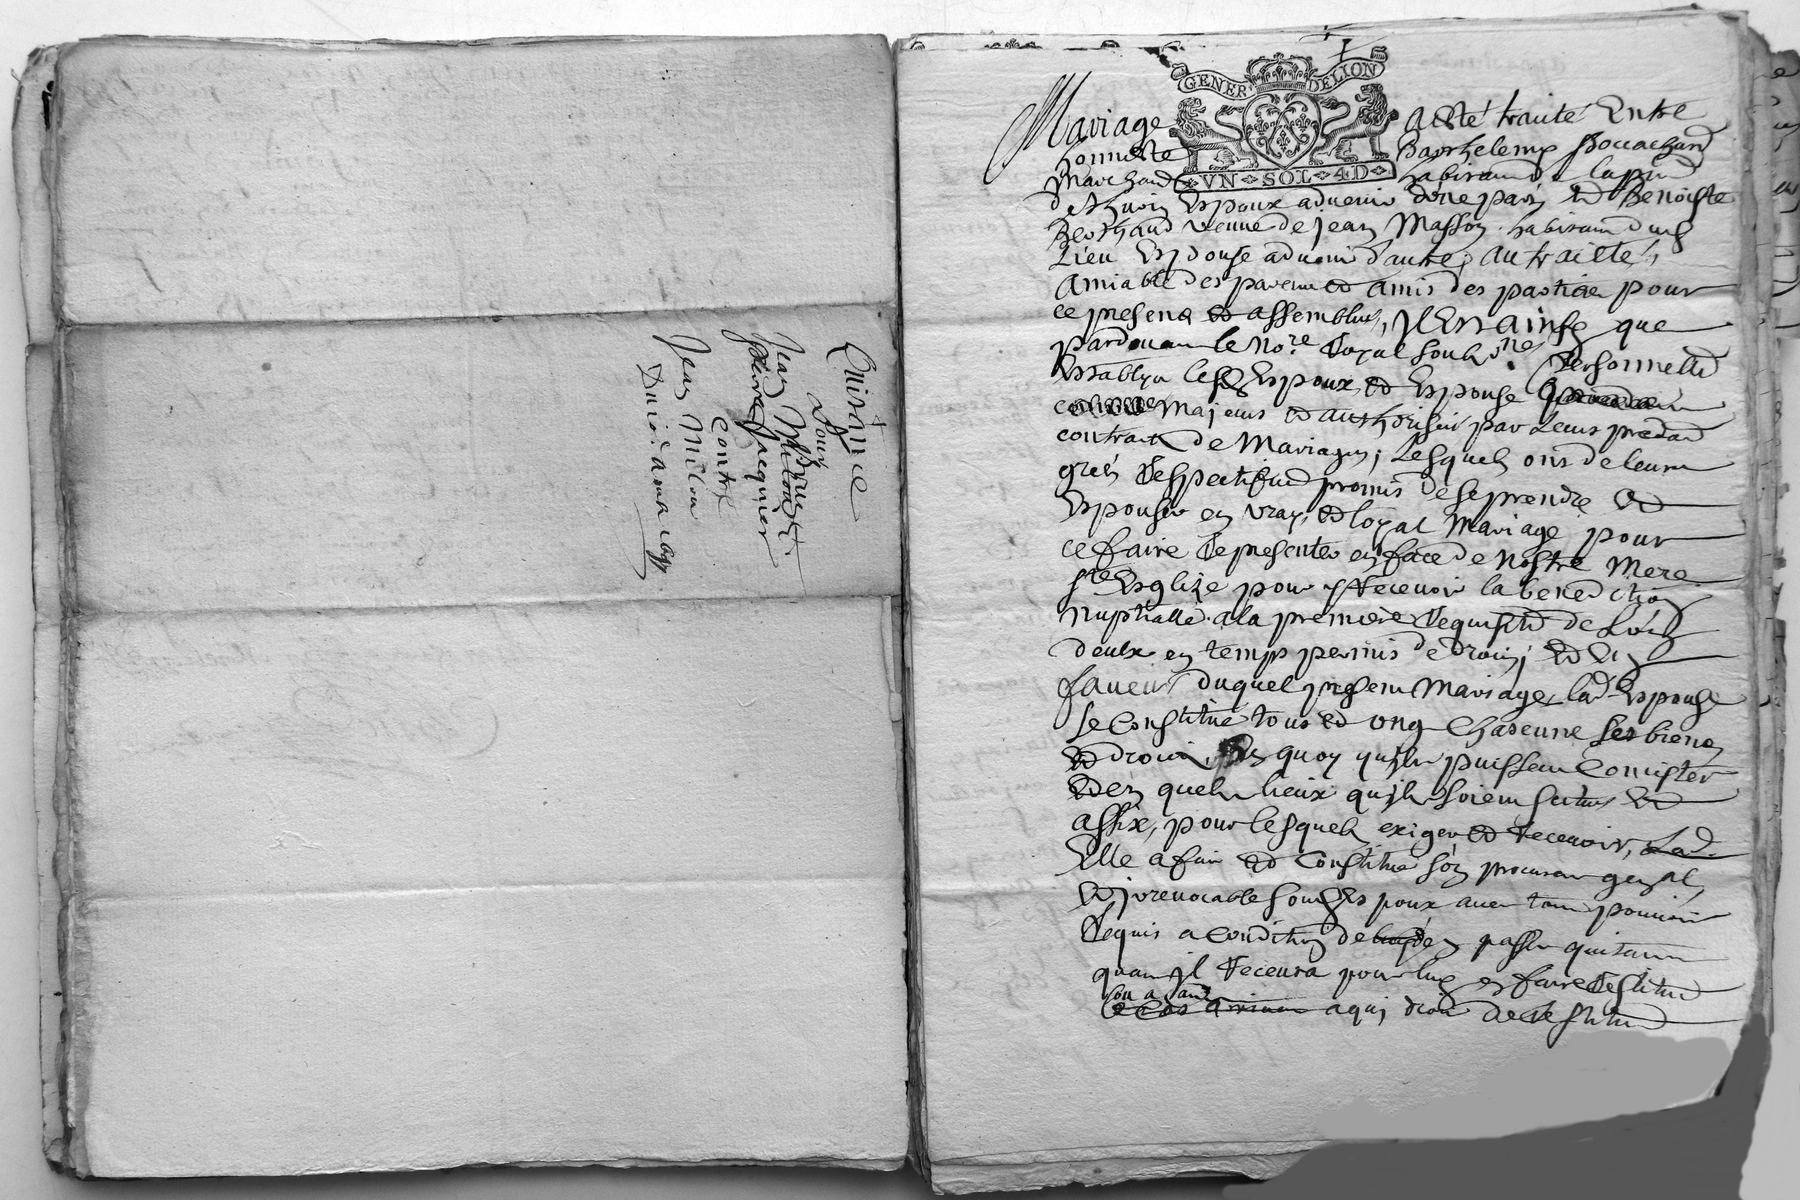 Quictance
pour
Jean Milouet
pierre Jacquier
contre
Jean Milou
GENER DELION
VN SOL 4D
Mariage a esté traité Entre
honneste Barthelemy Bouachard
Marchand habitant de la par
Espoux advenir d'une part Et Benoiste
Berthaud veuve de jean Masson habitant dud
Lieu Espouse advenir d'autre, au traitté
amiable des parens et amis des parties pour
ce presens et assemblés, jl Est ainsy que
pardevant le No.re Royal soub.né Personnell
Establys lesd Espoux et Espouse
majeurs et authorisés par leurs preced
contratz de Mariages, Lesquels ont de leurs
grés respectifvem promis de se prendre et
Espouser en vray et loyal Mariage pour
ce faire se presenter en face de Nostre Mere
Ste Esglize pour y recevoir la benediction
nuptialle a la premiere requisition de L'un
d'eulx en temps permis de droict, Et En
faveur duquel present Mariage, lad. Espouse
se Constitue tous et ung Chascune ses biens
et droicts, En quoy qu'ils puissent Consister
et en quels lieux qu'ils soient scitues et
assix, pour lesquels exiger et recevoir, Lad.
Elle a fait et Constitué son procureur genal,
et jrrevocable sond Espoux avec tout pouvoir
Requis a Condition de passer quittance
quant jl recevra pour luy en faire restitu
a qui droit de restitu